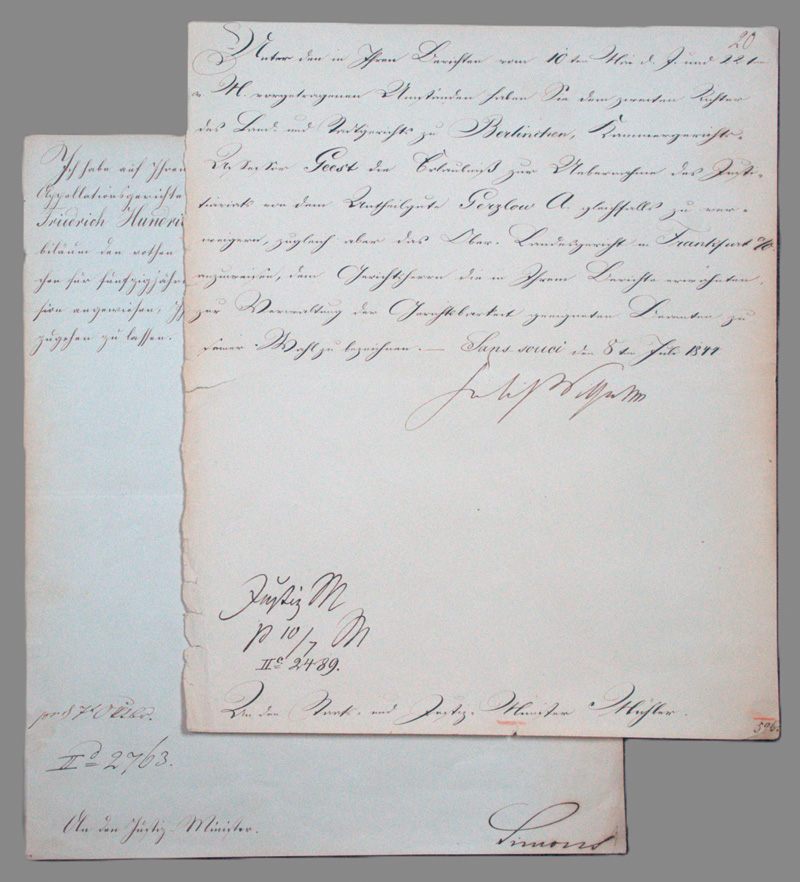 20
Unter den in Ihren Berichten vom 10ten Mai d. J. und 22ten
v. M. vorgetragenen Umständen haben Sie dem zweiten Richter
des Land- und Stadtgerichts zu Berlinchen, Kammergerichts-
Assessor Geest die Erlaubniß zur Uebernahme des Justi-
tiariats von dem Antheilgute Gerzlow A. gleichfalls zu ver-
weigern, zugleich aber das Ober-Landesgericht in Frankfurt a/O.
anzuweisen, dem Gerichtsherrn die in Ihrem Berichte erwähnten,
zur Verwaltung der Gerichtsbarkeit geeigneten Beamten zu
seiner Wahl zu bezeichnen. — Sanssouci den 8ten Juli 1844
Justiz M
p 10/7 M
II c 2489.
An den Staats- und Justiz-Minister Mühler.
596.
Ich habe auf Ihren
Appellationsgerichts
Friedrich
biläum den rothen
chen für fünfzigjähr
sion angewiesen, Ih
zugehen zu lassen.
II d 2763.
An den Justiz-Minister.
Simons